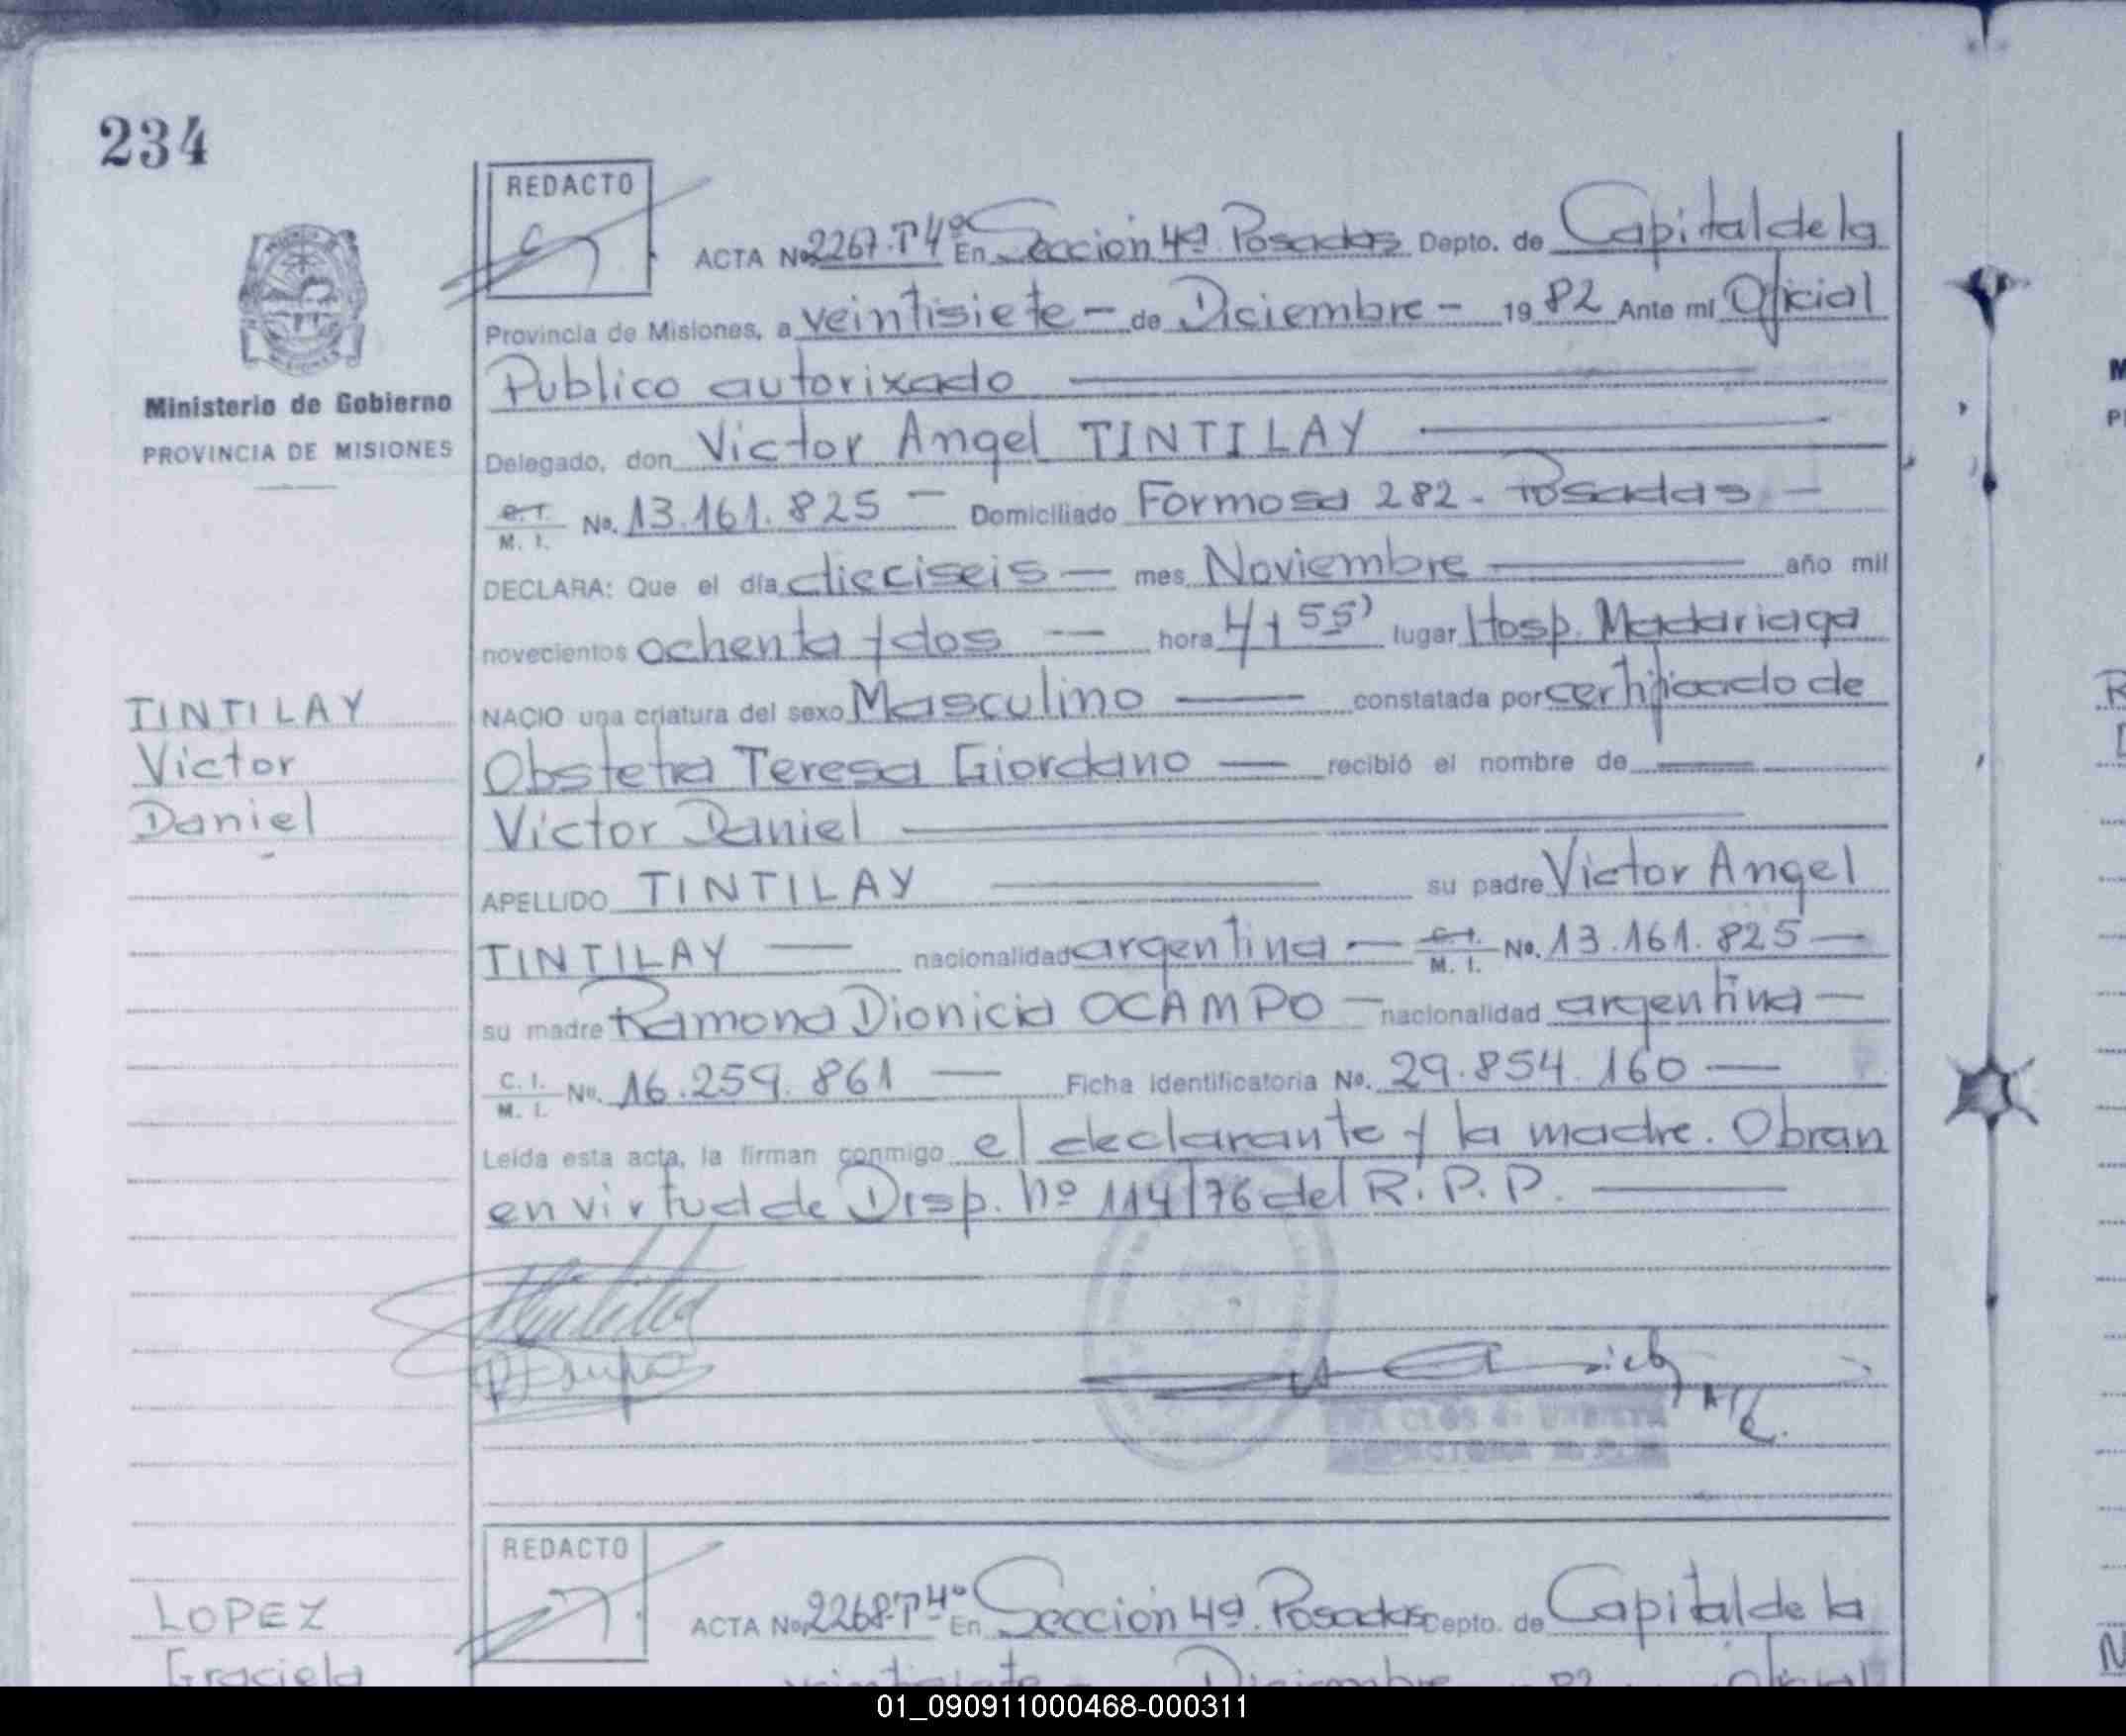 234
REDACTO
ACTA No. 2267-T4º En Sección 4ª Posadas Depto. de Capital de la
Provincia de Misiones, a veintisiete - de Diciembre - 1982 Ante mi Oficial
Publico autorixado
Ministerio de Gobierno
PROVINCIA DE MISIONES
Delegado, don Victor Angel TINTILAY
C.I. M. I. No. 13.161.825 - Domiciliado Formosa 282 - Posadas -
DECLARA: Que el día dieciseis - mes Noviembre año mil
novecientos ochenta y dos - hora 4 y 55' lugar Hosp. Madariaga
TINTILAY
Victor
Daniel
NACIO una criatura del sexo Masculino constatada por certificado de
Obstetra Teresa Giordano - recibió el nombre de
Victor Daniel
APELLIDO TINTILAY su padre Victor Angel
TINTILAY - nacionalidad argentina - C.I. M. I. No. 13.161.825 -
su madre Ramona Dionicia OCAMPO - nacionalidad argentina -
C. I. M. I. No. 16.259.861 - Ficha identificatoria No. 29.854.160 -
Leída esta acta, la firman conmigo el declarante y la madre. Obran
en virtud de Disp. nº 114/76 del R.P.P.
REDACTO
ACTA No. 2268-T4º En Sección 4ª Posadas Depto. de Capital de la
LOPEZ
Graciela
veintisiete - Diciembre 82 Oficial
01_090911000468-000311